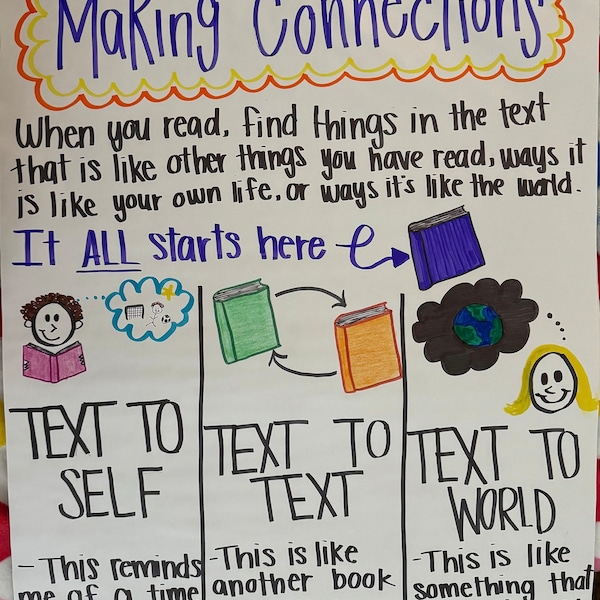 Making Connections
When you read, find things in the text
that is like other things you have read, ways it
is like your own life, or ways it's like the world.
It ALL starts here
TEXT TO
SELF
- This reminds
me of a time
TEXT TO
TEXT
- This is like
another book
TEXT TO
WORLD
- This is like
something that